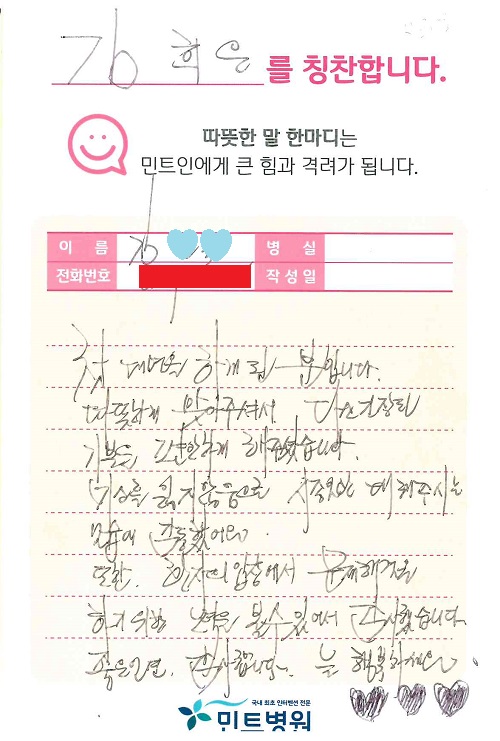 김희은를 칭찬합니다.
따뜻한 말 한마디는
민트인에게 큰 힘과 격려가 됩니다.
이 름 김 병 실
전화번호 작성일
첫 대면을 하게 된 분입니다.
따뜻하게 맞아주셔서 다소 긴장된
기분을 편안하게 해주셨습니다.
미소를 잃지않음으로 시종일관 대해주시는
모습에 감동했어요.
또한, 환자의 입장에서 문제해결을
하기 위한 노력을 볼 수 있어서 감사했습니다.
좋은인연, 감사합니다. 늘 행복하세요
국내 최초 인터벤션 전문
민트병원